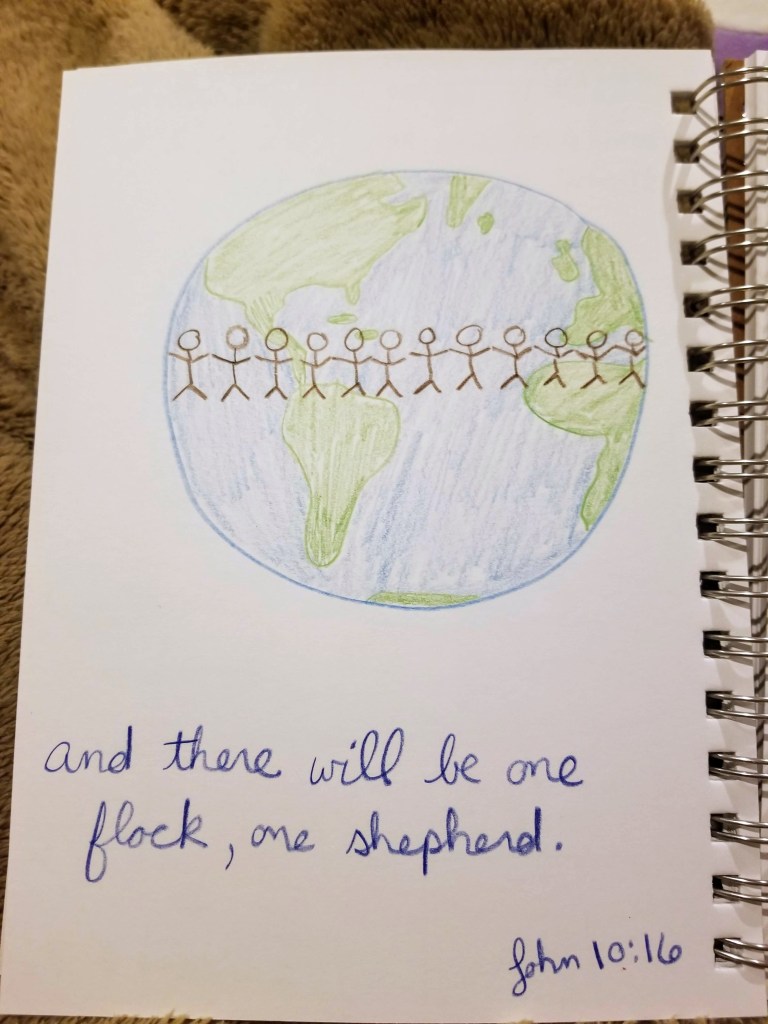 and there will be one
flock, one shepherd.
John 10:16